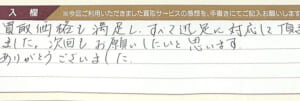 入 欄 ※今回ご利用いただきました買取サービスの感想を、手書きにてご記入お願いします
買取価格も満足し、すべて迅速に対応して頂き
ました。次回もお願いしたいと思います。
ありがとうございました。